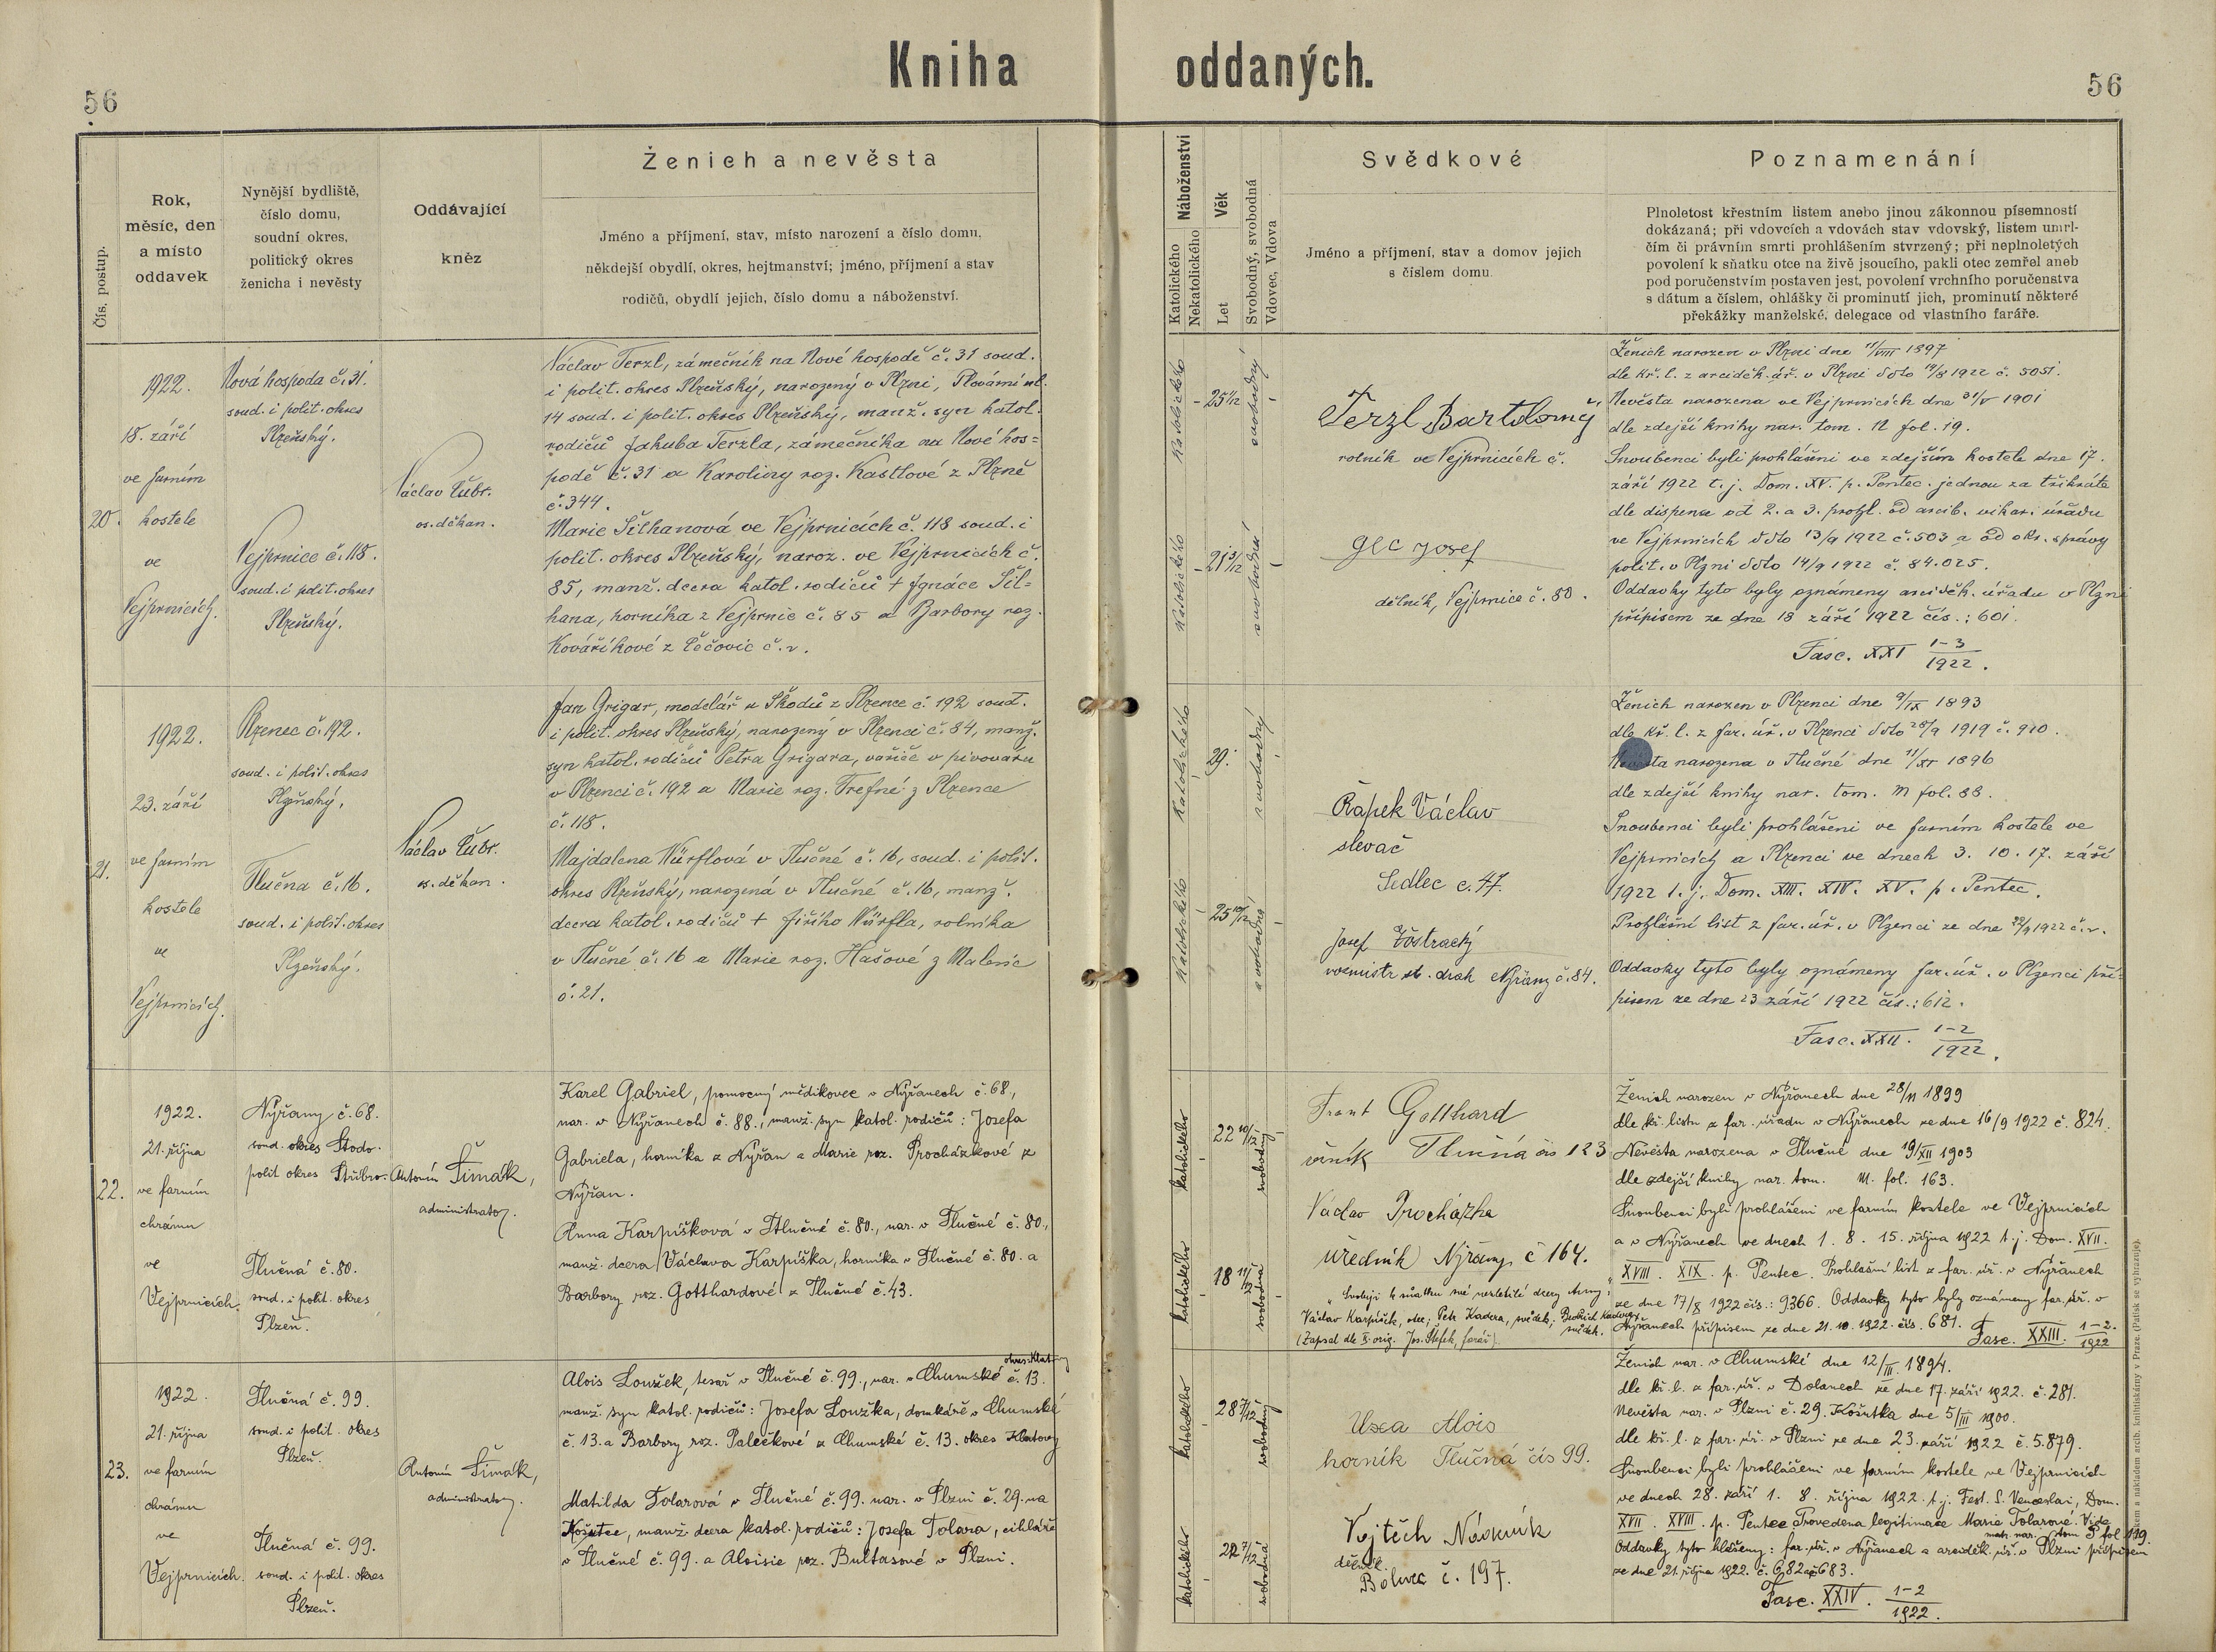 Kniha oddaných.
56
56
Čís. postup.
Rok,
měsíc, den
a místo
oddavek
Nynější bydliště,
číslo domu,
soudní okres,
politický okres
ženicha i nevěsty
Oddávající
kněz
Ženich a nevěsta
Jméno a příjmení, stav, místo narození a číslo domu,
někdejší obydlí, okres, hejtmanství; jméno, příjmení a stav
rodičů, obydlí jejich, číslo domu a náboženství.
Náboženství
Katolického
Nekatolického
Věk
Let
Svobodný, svobodná
Vdovec, Vdova
Svědkové
Jméno a příjmení, stav a domov jejich
s číslem domu.
Poznamenání
Plnoletost křestním listem anebo jinou zákonnou písemností
dokázaná; při vdovcích a vdovách stav vdovský, listem umrl-
čím či právním smrti prohlášením stvrzený; při neplnoletých
povolení k sňatku otce na živě jsoucího, pakli otec zemřel aneb
pod poručenstvím postaven jest, povolení vrchního poručenstva
s dátum a číslem, ohlášky či prominutí jich, prominutí některé
překážky manželské, delegace od vlastního faráře.
20.
1922.
18. září
ve farním
kostele
ve
Vejprnicích.
Nová hospoda č. 31.
soud. i polit. okres
Plzeňský.
Vejprnice č. 118.
soud. i polit. okres
Plzeňský.
Václav Čubr.
os. děkan.
Václav Terzl, zámečník na Nové hospodě č. 31 soud.
i polit. okres Plzeňský, narozený v Plzni, Plovární ul.
14 soud. i polit. okres Plzeňský, manž. syn katol.
rodičů Jakuba Terzla, zámečníka na Nové hos=
podě č. 31 a Karoliny roz. Kastlové z Plzně
č. 344.
Marie Šilhanová ve Vejprnicích č. 118 soud. i
polit. okres Plzeňský, naroz. ve Vejprnicích č.
85, manž. dcera katol. rodičů + Ignáce Šil=
hana, horníka z Vejprnic č. 85 a Barbory roz.
Kováříkové z Čečovic č. v.
katolického
25 1/12
svobodný
katolického
21 3/12
svobodná
Terzl Bartolomý
rolník ve Vejprnicích č.
Glc Josef
dělník, Vejprnice č. 80.
Ženich narozen v Plzni dne 11/VIII 1897
dle kř. l. z arciděk. úř. v Plzni ddto 19/8 1922 č. 5051.
Nevěsta narozena ve Vejprnicích dne 31/V 1901
dle zdejší knihy nar. tom. N fol. 19.
Snoubenci byli prohlášeni ve zdejším kostele dne 17.
září 1922 t. j. Dom. XV. p. Pentec. jednou za třikráte
dle dispense od 2. a 3. prohl. od arcib. vikar. úřadu
ve Vejprnicích ddto 13/9 1922 č. 503 a od okr. správy
polit. v Plzni ddto 14/9 1922 č. 84.025.
Oddavky tyto byly oznámeny arciděk. úřadu v Plzni
přípisem ze dne 18 září 1922 čís.: 601.
Fasc. XXI 1-3/1922.
21.
1922.
23. září
ve farním
kostele
ve
Vejprnicích.
Plzenec č. 192.
soud. i polit. okres
Plzeňský.
Tlučna č. 16.
soud. i polit. okres
Plzeňský.
Václav Čubr.
os. děkan.
Jan Grigar, modelář u Škodů z Plzence č. 192 soud.
i polit. okres Plzeňský, narozený v Plzenci č. 84, manž.
syn katol. rodičů Petra Grigara, vařiče v pivovaru
v Plzenci č. 192 a Marie roz. Trefné z Plzence
č. 118.
Majdalena Würflová v Tlučné č. 16, soud. i polit.
okres Plzeňský, narozená v Tlučné č. 16, manž.
dcera katol. rodičů + Jiřího Würfla, rolníka
v Tlučné č. 16 a Marie roz. Hašové z Malesic
č. 21.
katolického
29.
svobodný
katolického
25 10/12
svobodná
Řapek Václav
slevač
Sedlec č. 47.
Josef
st. drah Nýřany č. 84.
Ženich narozen v Plzenci dne 9/IX 1893
dle kř. l. z far. úř. v Plzenci ddto 28/9 1919 č. 910.
Nevěsta narozena v Tlučné dne 11/XI 1896
dle zdejší knihy nar. tom. M fol. 88.
Snoubenci byli prohlášeni ve farním kostele ve
Vejprnicích a Plzenci ve dnech 3. 10. 17. září
1922 t. j. Dom. XIII. XIV. XV. p. Pentec.
Prohlášní list z far. úř. v Plzenci ze dne 22/9 1922 č. v.
Oddavky tyto byly oznámeny far. úř. v Plzenci pří=
pisem ze dne 23 září 1922 čís.: 612.
Fasc. XXII. 1-2/1922.
22.
1922.
21. října
ve farním
chrámu
ve
Vejprnicích.
Nýřany č. 68.
soud. okres Stodo.
polit okres Stříbro.
Tlučná č. 80.
soud. i polit. okres
Plzeň.
Antonín Šimák,
administrator.
Karel Gabriel, pomocný mědikovec v Nýřanech č. 68,
nar. v Nýřanech č. 88., manž. syn katol. rodičů: Josefa
Gabriela, horníka z Nýřan a Marie roz. Procházkové z
Nýřan.
Anna Karpíšková v Tlučné č. 80., nar. v Tlučné č. 80.,
manž. dcera Václava Karpíška, horníka v Tlučné č. 80. a
Barbory roz. Gotthardové z Tlučné č. 43.
katolického
22 10/12
svobodný
katolického
18 11/12
svobodná
Frant Gotthard
Tlučná čís 123
Václav Procházka
úředník Nýřany č 164.
"Svoluji k sňatku své nezletilé dcery Anny:"
Václav Karpíšek, otec; Petr Kadera, svědek;
svědek.
(Zapsal dle orig. Jos. Štefek, farář).
Ženich narozen v Nýřanech dne 28/11 1899
dle kř. listu z far. úřadu v Nýřanech ze dne 16/9 1922 č. 824.
Nevěsta narozena v Tlučné dne 19/XII 1903
dle zdejší knihy nar. tom. M. fol. 163.
Snoubenci byli prohlášeni ve farním kostele ve Vejprnicích
a v Nýřanech ve dnech 1. 8. 15. října 1922 t. j. Dom. XVII.
XVIII. XIX. p. Pentec. Prohlašní list z far. úř. v Nýřanech
ze dne 17/X 1922 čís.: 9366. Oddavky tyto byly oznámeny far. úř. v
Nýřanech přípisem ze dne 21. 10. 1922. čís. 681. Fasc. XXIII. 1-2./1922
23.
1922.
21. října
ve farním
chrámu
ve
Vejprnicích.
Tlučná č. 99.
soud. i polit. okres
Plzeň.
Tlučná č. 99.
soud. i polit. okres
Plzeň.
Antonín Šimák,
administrator.
okres: Klatovy
Alois Loužek, tesař v Tlučné č. 99., nar. v Chumské č. 13.
manž. syn katol. rodičů: Josefa Loužka, domkáře v Chumské
č. 13. a Barbory roz. Palečkové z Chumské č. 13. okres Klatovy
Matilda Tolarová v Tlučné č. 99. nar. v Plzni č. 29. na
Košutce, manž. dcera katol. rodičů: Josefa Tolara, cihláře
v Tlučné č. 99. a Aloisie roz. Bultasové v Plzni.
katolického
28 7/12
svobodný
katolického
22 7/12
svobodná
Uxa Alois
horník Tlučná čís 99.
Vojtěch
dělník
Bolevec č. 197.
Ženich nar. v Chumské dne 12/III. 1894.
dle kř. l. z far. úř. v Dolanech ze dne 17. září 1922. č. 281.
Nevěsta nar. v Plzni č. 29. Košutka dne 5/III 1900.
dle kř. l. z far. úř. v Plzni ze dne 23. září 1922 č. 5.879.
Snoubenci byli prohlášeni ve farním kostele ve Vejprnicích
ve dnech 28. září 1. 8. října 1922. t. j. Fest. S. Venceslai, Dom.
XVII. XVIII. p. Pentec. Provedena legitimace Marie Tolarové. Vide
matr. nar. tom P fol 119.
Oddavky tyto hlášeny: far. úř. v Nýřanech a arciděk. úř. v Plzni přípisem
ze dne 21. října 1922. č. 682 a 683.
Fasc. XXIV. 1-2/1922.
nákladem arcib. knihtiskárny v Praze. (Patisk se vyhrazuje).